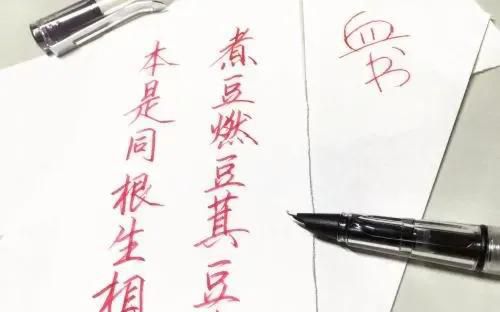 血书
煮豆燃豆萁豆
本是同根生相